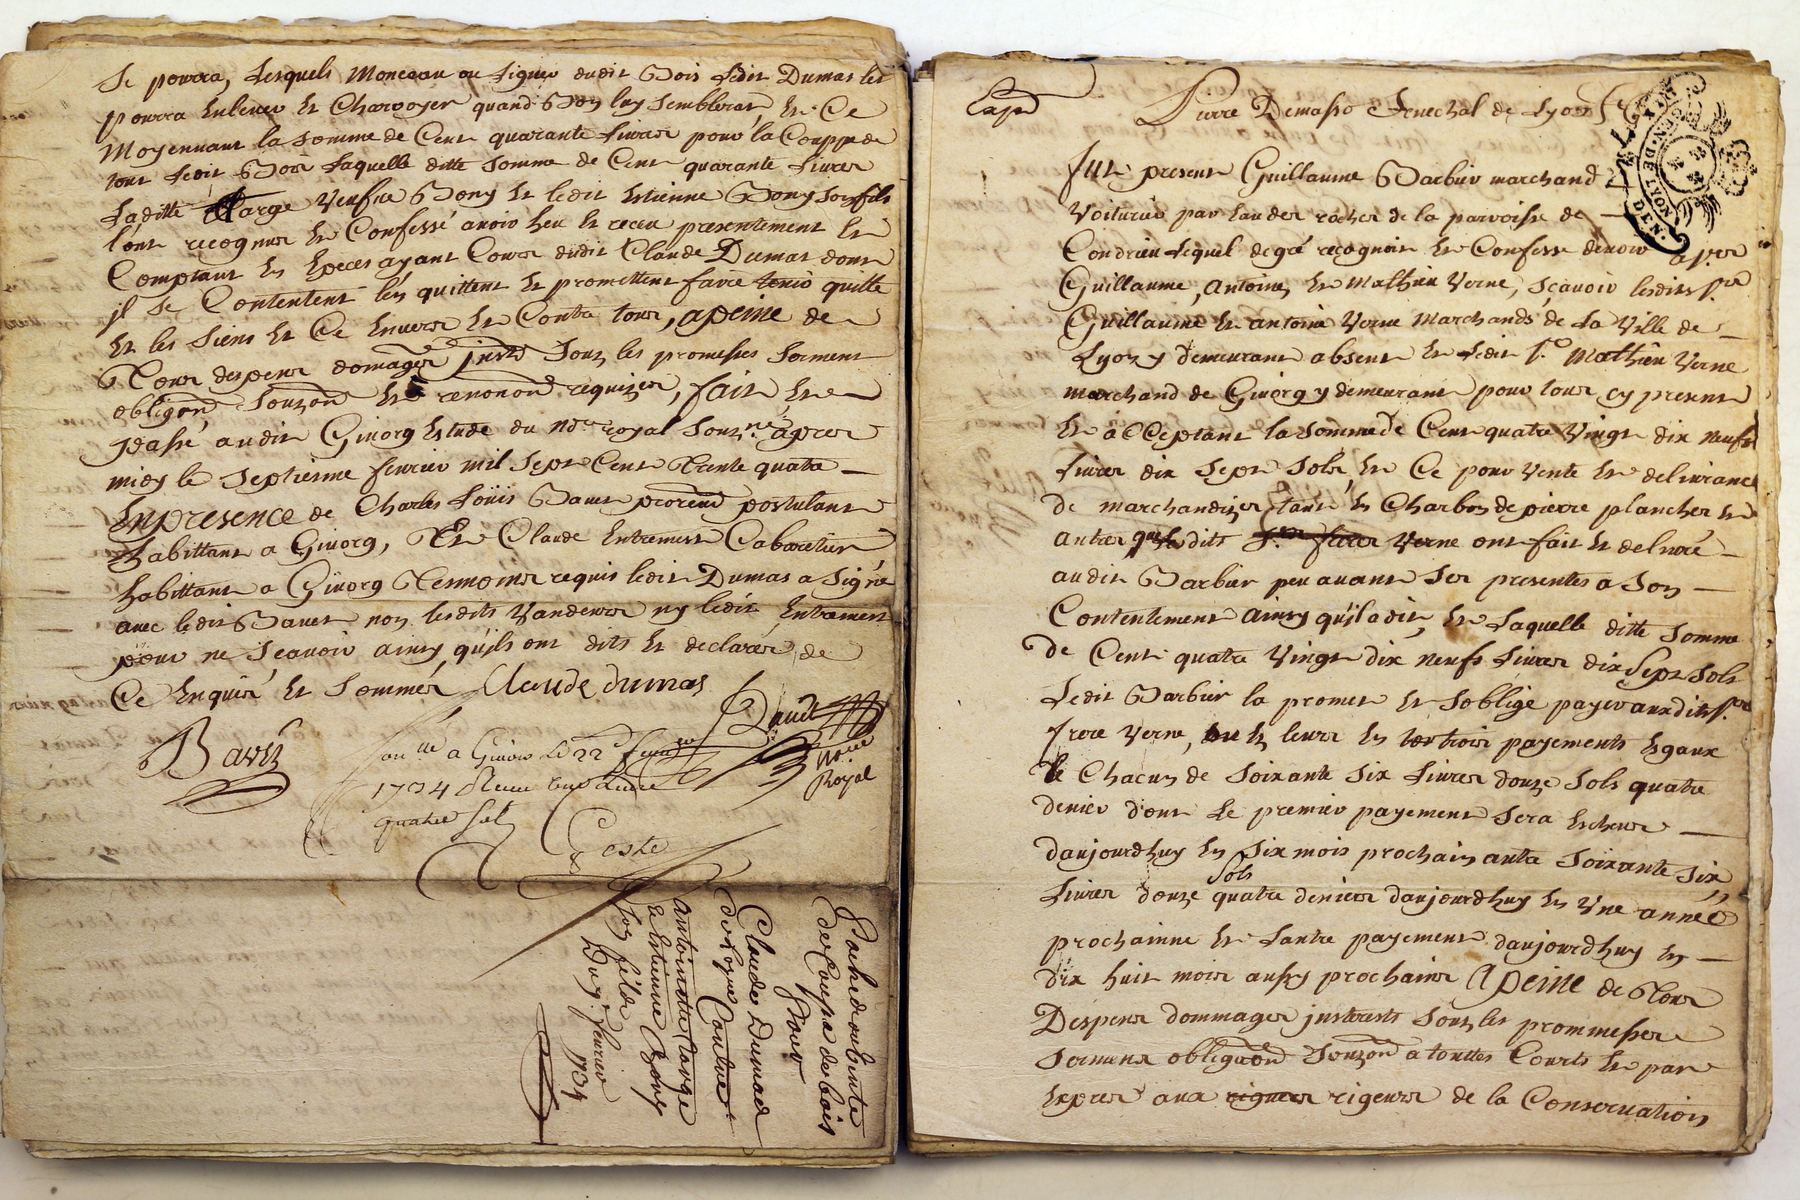 Se pourra, Lesquels Monceau ou Ligues dudit Bois Ledit Dumas les
pourra Enlever Et Charroyer quand Bon luy Semblera, Et Ce
Moyennant la Somme de Cent quarante Livres pour la Couppe de
tout Ledit Bois Laquelle ditte Somme de Cent quarante Livres
Laditte Large Veufve Bony Et ledit Estienne Bony Son fils
l'ont recognus Et Confessé avoir heu Et receu presentement Et
Comptant En Especes ayant Cours dudit Claude Dumas dont
jl Se Contentent len quittent Et promettent faire tenir quitte
Et les Siens Et Ce Envers Et Contre tous, apeine de
Tous despens domages jnstz Sous les promesses Serment
obligaon Soumon Et renonon requizes, fait Et
passé audit Givors Estude du nore royal Soune apres
midy le Septieme fevrier mil Sept Cent Trente quatre
En presence de Charles Loüis Baves procureur postulant
habittant a Givors, Et Claude Entremest Cabaretier
habittant a Givors Tesmoins requis ledit Dumas a Signé
avec ledit Baves non lesdits Vandeurs ny ledit Entremest
pour ne Scavoir ainsy qu'ils ont dits Et declarés de
Ce Enquis Et Sommés Claude dumas
Baudi
nore
Royal
a Givors Le 22e
1734 Reçu une Livre
quatre Sols
Coste
de Couppe de bois
pour
Claude Dumas
Contre
antoinette large
et Estienne Bony
son fils
Du 7 fevrier
1734
Pierre Demasso Senechal de Lyon
GEN. DE LYON
Fut present Guillaume Barbier marchand
Voiturier par Eau des roches de la parroisse de
Condrieu Lequel de gré recognoit Et Confesse devoir a srs
Guillaume, Antoine, Et Mathieu Verne, Sçavoir lesdits srs
Guillaume Et antoine Verne Marchands de La Ville de
Lyon y demeurant absent Et Ledit sr Mathieu Verne
marchand de Givors y demeurant pour tous cy present
Et acceptant la Somme de Cent quatre Vingt dix neufs
Livres dix Sept Sols, Et Ce pour Vente Et delivrance
de marchandizes tant En Charbon de pierre plancher Et
autres que lesdits srs freres Verne ont fait Et delivré
audit Barbier peu avant Ses presentes a Son
Contentement ainsy qu'il a dit, Et Laquelle ditte Somme
de Cent quatre Vingt dix neufs Livres dix Sept Sols
Ledit Barbier la promet Et Soblige payer auxdits srs
frere Verne, ou En leurs En trois payements Egaux
de Chacun de Soixante Six Livres douze Sols quatre
denier dont Le premier payement Sera Echeus
daujourdhuy En Six mois prochain autre Soixante Six
Livres douze Sols quatre deniers daujourdhuy En Une année
prochainne Et Lautre payement daujourdhuy En
dix huit mois aussy prochains Apeine de Tous
Despens dommages jnterests Sous les prommesses
Serment obligaon Soumon a touttes Courts Et par
Expres aux rigueurs rigeurs de la Conservation